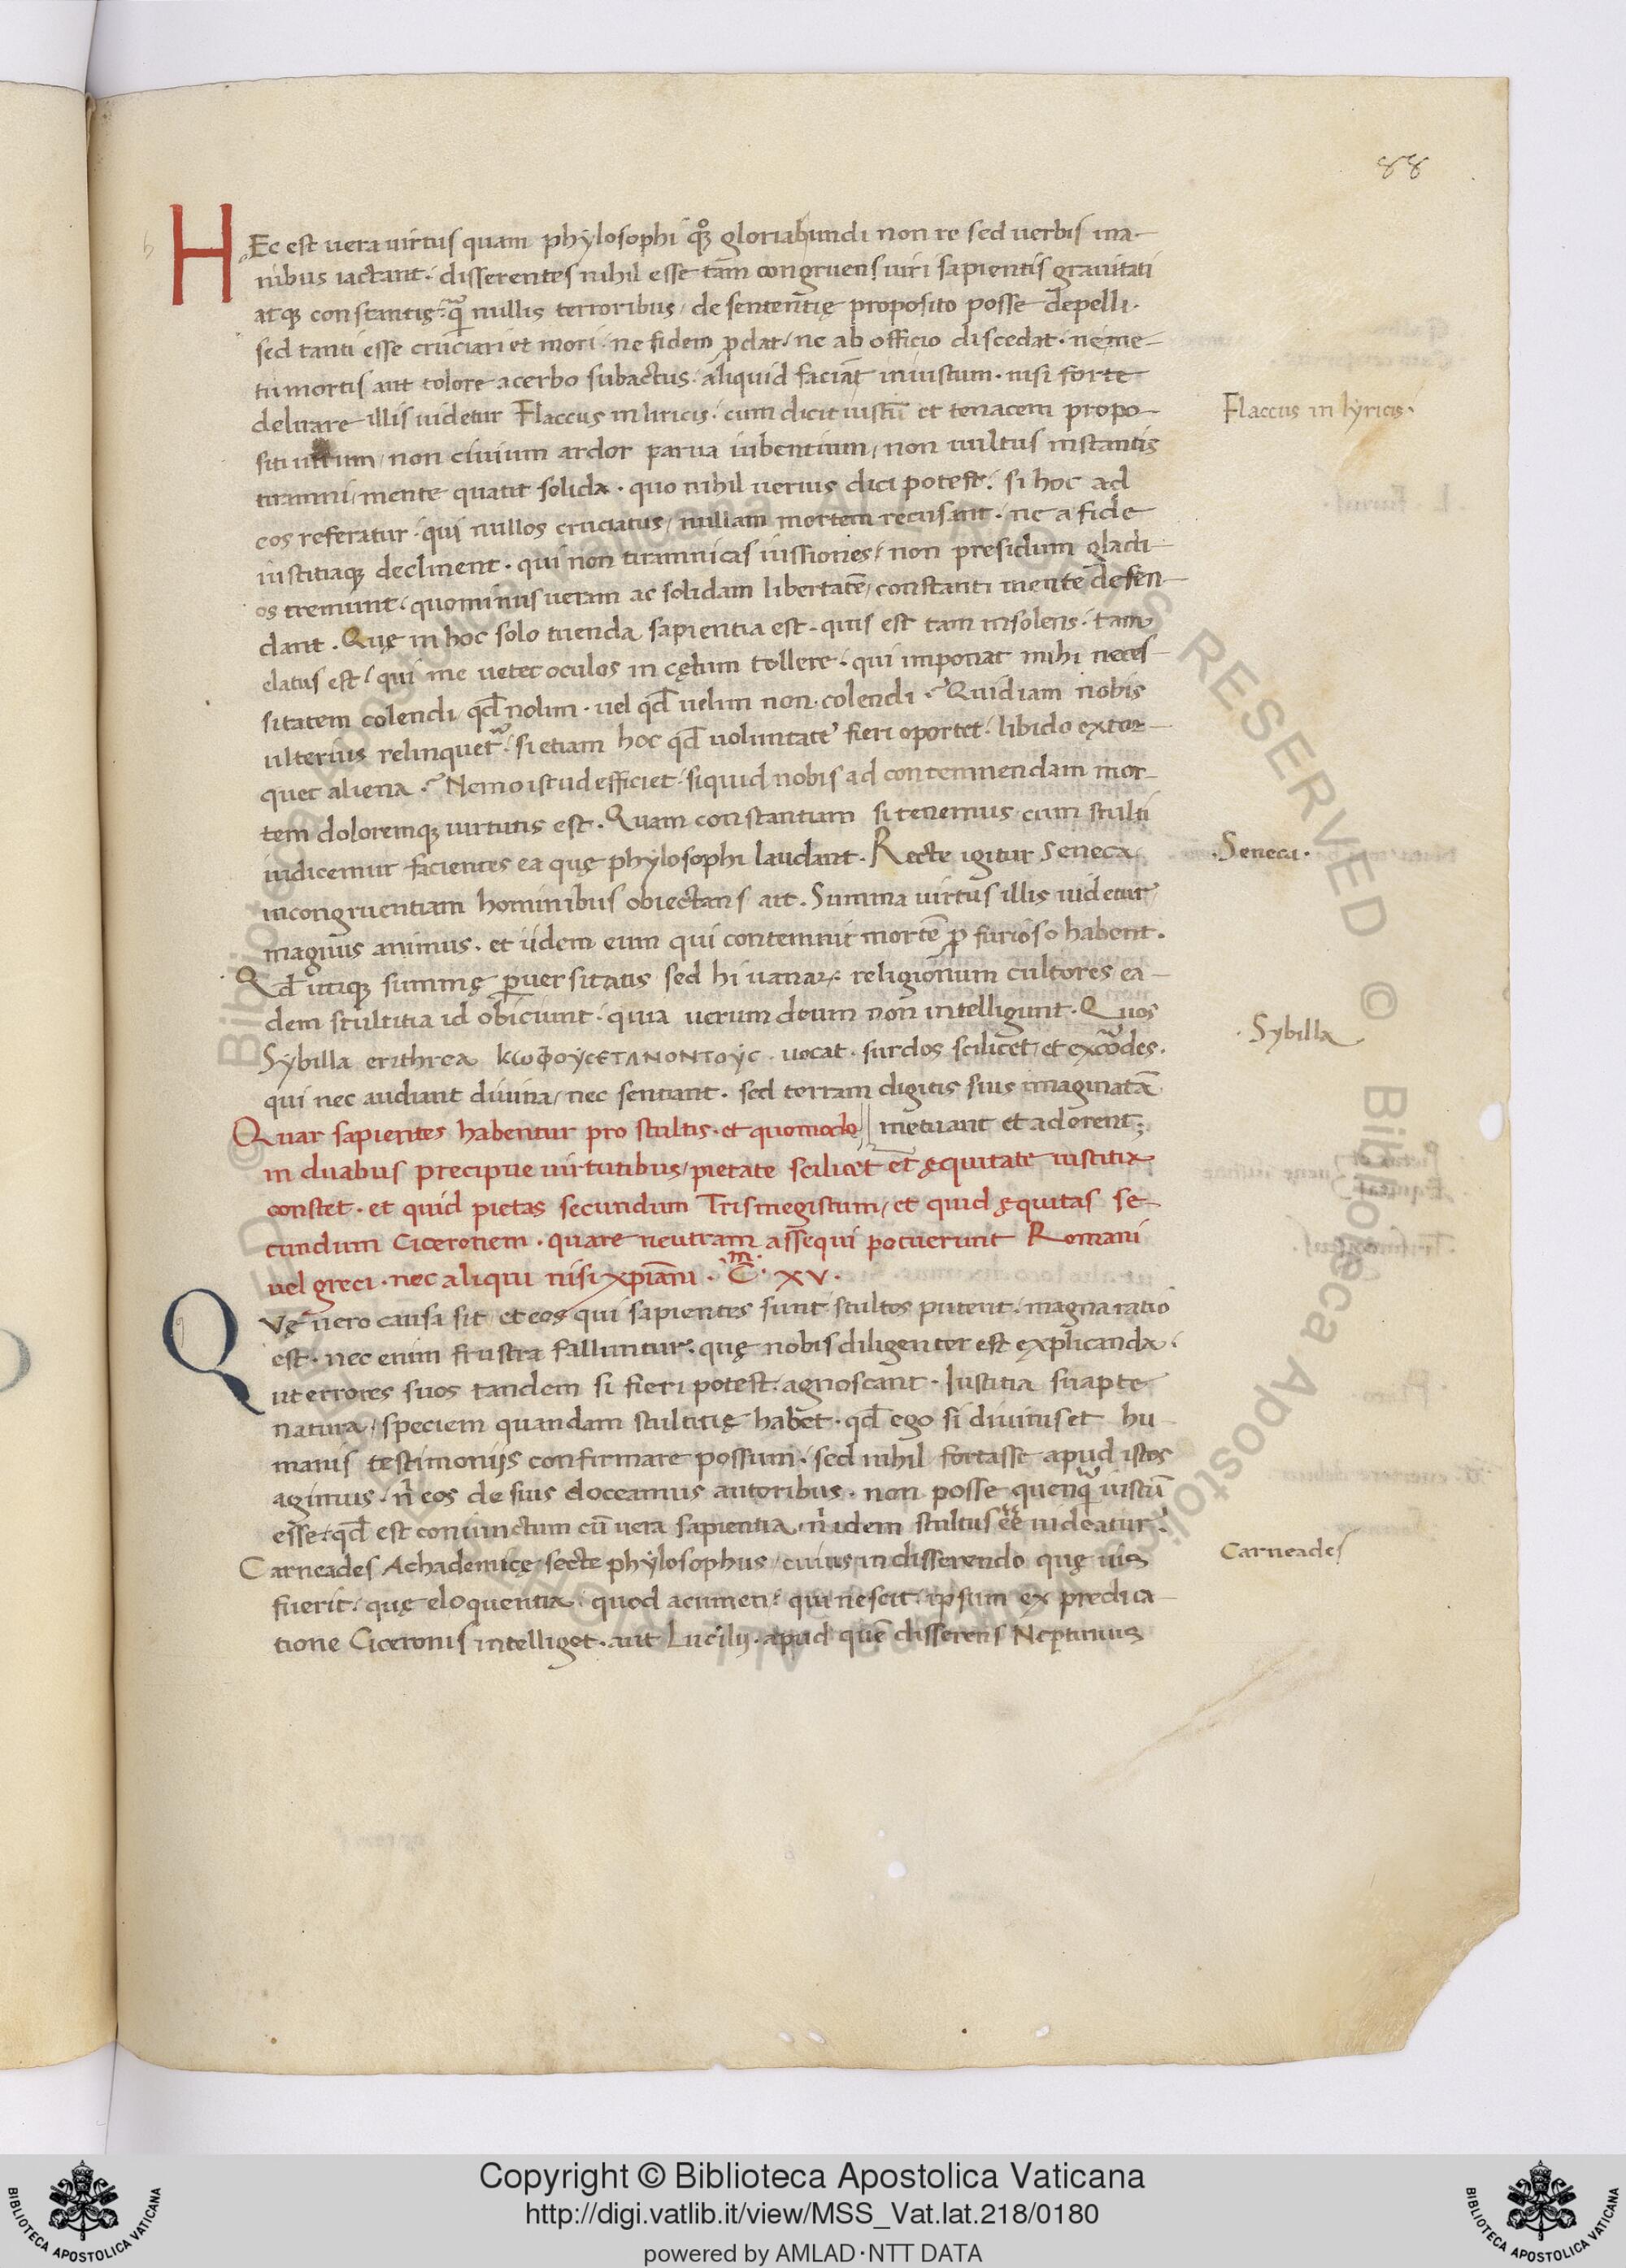 88
HEc est uera uirtus quam phylosophi qꝫ gloriabundi non re sed uerbis ina-
nibus iactant. disserentes nihil esse tam congruens uiri sapientis grauitati
atqꝫ constantię. ꝙ nullis terroribus / de sententię proposito posse depelli.
sed tanti esse cruciari et mori. ne fidem ꝓdat. ne ab officio discedat. ne me-
tu mortis aut tolore acerbo subactus. aliquid faciat iniustum. nisi forte
deluare illis uidetur Flaccus in liricis. cum dicit iustū et tenacem propo-
Flaccus in lyricis.
siti uirum / non ciuium ardor parua iubentium / non uultus instantis
tiramni / mente quatit solida. quo nihil uerius dici potest. si hoc ad
eos referatur. qui nullos cruciatus / nullam mortem recusant. ne a fide
iustitiaqꝫ declinent. qui non tiramnicas iussiones / non presidum gladi-
os tremunt. quominus ueram ac solidam libertatē / constanti mente defen-
dant. Quę in hoc solo tuenda sapientia est. quis est tam insolens. tam
elatus est / qui me uetet oculos in cęlum tollere. qui imponat mihi neces-
sitatem colendi qđ nolim. uel qđ uelim non colendi. Quid iam nobis
ulterius relinquet. si etiam hoc qđ uoluntate fieri oportet. libido extor-
quet aliena. Nemo istud efficiet. siquid nobis ad contemnendam mor-
tem doloremqꝫ uirtutis est. Quam constantiam si tenemus cum stulti
iudicemur facientes ea quę phylosophi laudant. Recte igitur Seneca
.Seneca.
incongruentiam hominibus obiectans ait. Summa uirtus illis uidetur
magnus animus. et iidem eum qui contemnit mortē ꝓ furioso habent.
Qđ utiqꝫ summę ꝑuersitatis sed hi uanaꝝ religionum cultores ea-
dem stultitia id obiciunt. quia uerum deum non intelligunt. Quos
Sybilla erithrea ΚωΦΟΥCΕΤΑΝΟΝΤΟΥC. uocat. surdos scilicet et excordes.
.Sybilla
qui nec audiant diuina / nec sentiant. sed terram digitis suis imaginatā
Quar sapientes habentur pro stultis. et quomodo || metuant et adorent;
in duabus precipue uirtutibus / pietate scilicet et ęquitate iustitia
constet. et quid pietas secundum Trismegistum / et quid ęquitas se-
cundum Ciceronem. quare neutram assequi potuerunt Romani
uel greci. nec aliqui nisi xpiani. C. XV.
QVę uero causa sit et eos qui sapientes sunt stultos putent. magna ratio
est. nec enim frustra falluntur. quę nobis diligenter est explicanda.
ut errores suos tandem si fieri potest. agnoscant. Iustitia suapte
natura / speciem quandam stultitię habet. qđ ego si diuinis et hu-
manis testimoniis confirmare possum. sed nihil fortasse apud istos
agimus. n̄ eos de suis doceamus autoribus. non posse quenꝙ iustū
esse. qđ est coniunctum cū uera sapientia. n̄ idem stultus eē uideatur.
Carneades Achademicę secte phylosophus / cuius in disserendo quę uis
Carneades
fuerit. quę eloquentia. quod acumen. qui nescit. ipsum ex predica-
tione Ciceronis intelliget. aut Lucilii. apud quē disserens Neptunus
Copyright © Biblioteca Apostolica Vaticana
http://digi.vatlib.it/view/MSS_Vat.lat.218/0180
powered by AMLAD·NTT DATA
BIBLIOTECA APOSTOLICA VATICANA
BIBLIOTECA APOSTOLICA VATICANA